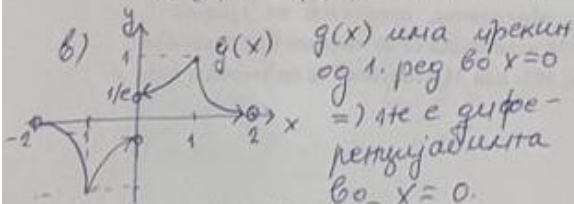 в)
y
1
g(x)
1/e
-2
-1
1
2
x
g(x) има прекин
од 1. ред во x=0
=) не е дифе-
ренцијабилна
во x=0.